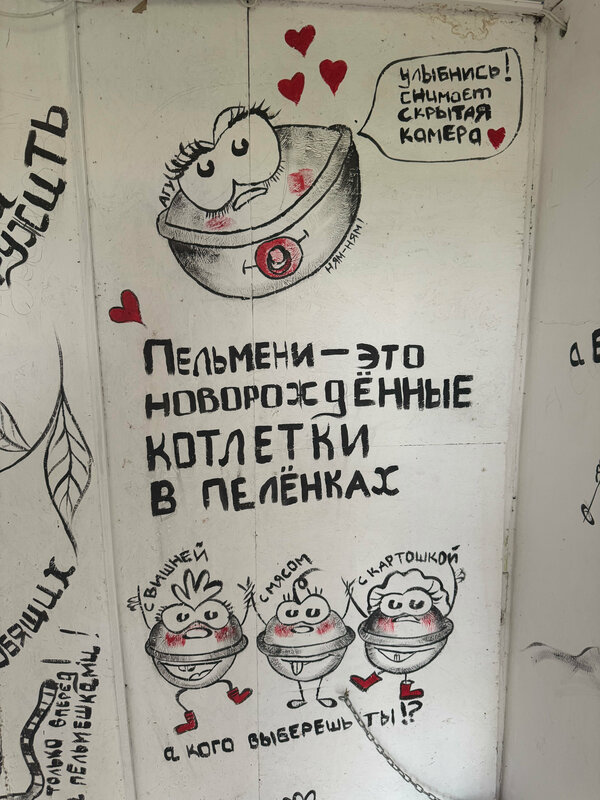 УЛЫБНИСЬ!
СНИМАЕТ
СКРЫТАЯ
КАМЕРА
АГУ
НЯМ-НЯМ!
ПЕЛЬМЕНИ — ЭТО
НОВОРОЖДЁННЫЕ
КОТЛЕТКИ
В ПЕЛЁНКАХ
С ВИШНЕЙ
С МЯСОМ
С КАРТОШКОЙ
а КОГО ВЫБЕРЕШЬ ТЫ!?
ТОЛЬКО ВПЕРЁД!
ПЕЛЬМЕШКАМИ!